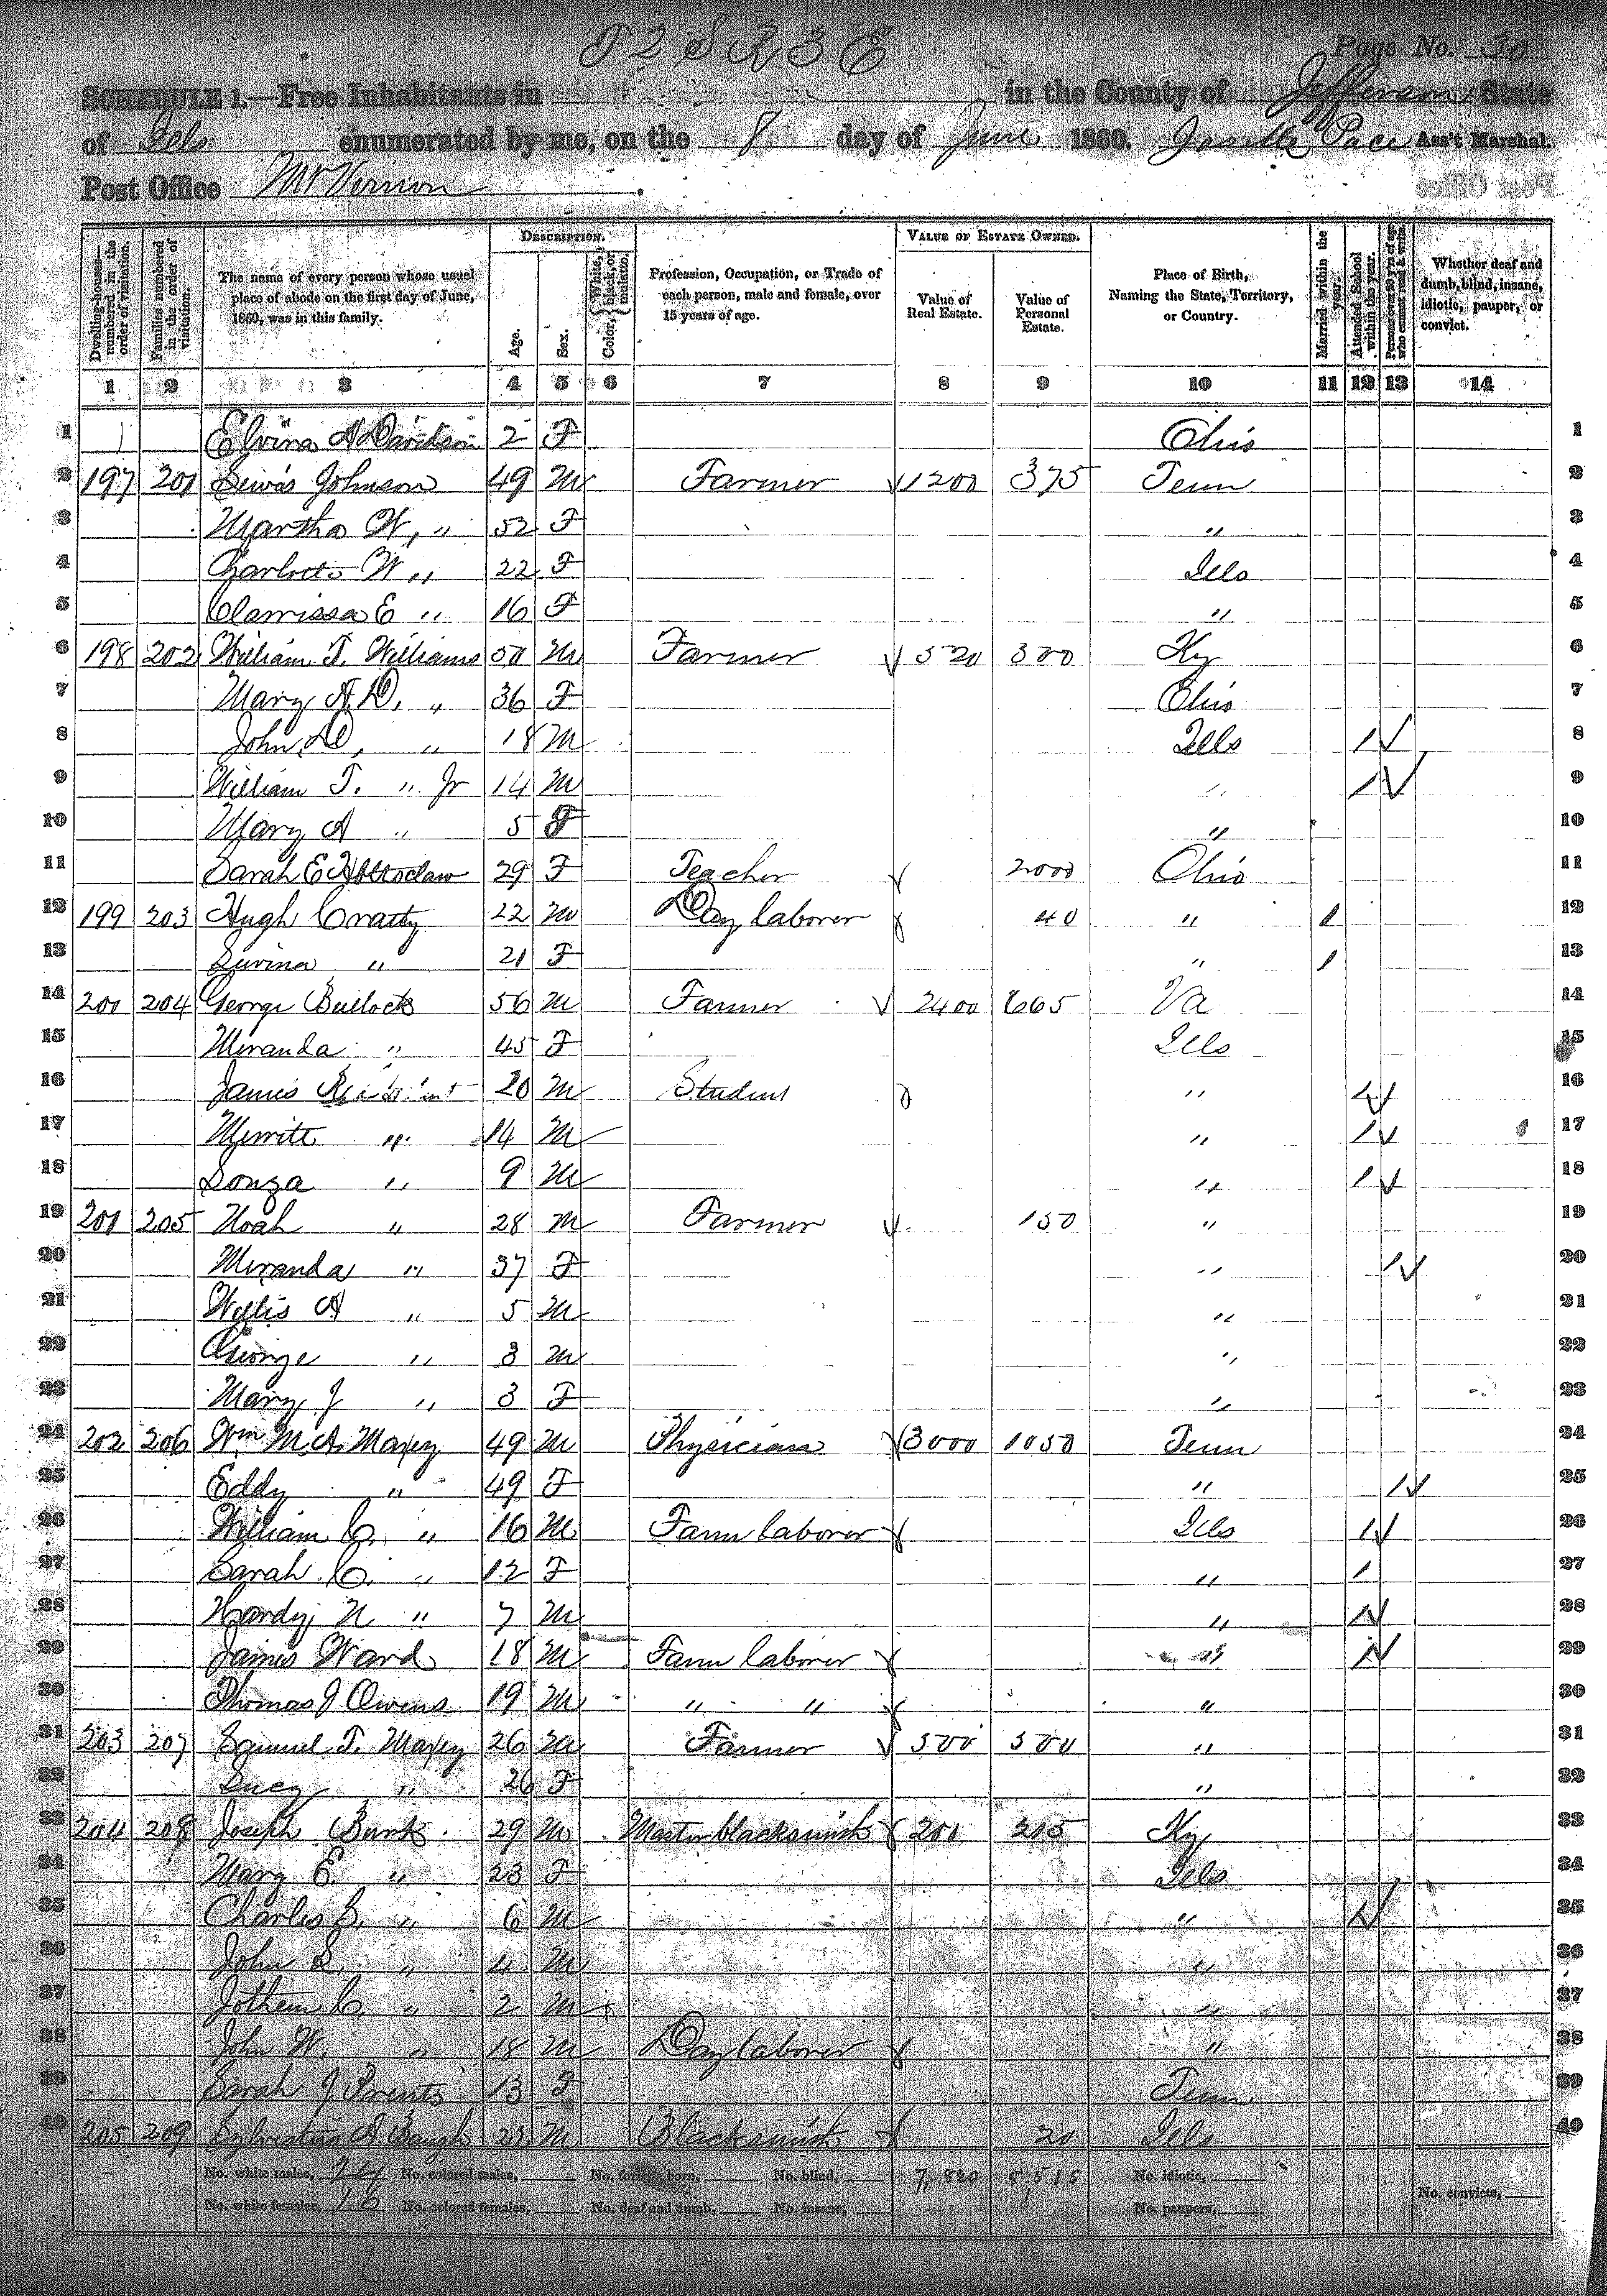 T 2 S R 3 E
Page No. 30
SCHEDULE 1.—Free Inhabitants in in the County of Jefferson State
of Ills enumerated by me, on the 8 day of June 1860. Pace Ass't Marshal.
Post Office Mt Vernon.
Dwelling-houses—numbered in the order of visitation.
Families numbered in the order of visitation.
The name of every person whose usual place of abode on the first day of June, 1860, was in this family.
DESCRIPTION.
Age.
Sex.
Color, { White, black, or mulatto.
Profession, Occupation, or Trade of each person, male and female, over 15 years of age.
VALUE OF ESTATE OWNED.
Value of Real Estate.
Value of Personal Estate.
Place of Birth, Naming the State, Territory, or Country.
Married within the year.
Attended School within the year.
Persons over 20 y'rs of age who cannot read & write.
Whether deaf and dumb, blind, insane, idiotic, pauper, or convict.
1 2 3 4 5 6 7 8 9 10 11 12 13 14
1 Elvina A Davidson 2 F Ohio 1
2 197 201 Lewis Johnson 49 M Farmer 1200 375 Tenn 2
3 Martha W, " 52 F " 3
4 Charlotte W " 22 F Ills 4
5 Clarrissa E " 16 F " 5
6 198 202 William T. Williams 50 M Farmer 520 300 Ky 6
7 Mary A. D. " 36 F Ohio 7
8 John D, " 18 M Ills / 8
9 William T. " Jr 14 M " / 9
10 Mary A " 5 F " 10
11 Sarah E Holtsclaw 29 F Teacher 2000 Ohio 11
12 199 203 Hugh Cratty 22 M Day laborer 40 " / 12
13 Luvina " 21 F " / 13
14 200 204 George Bullock 56 M Farmer 2400 665 Va 14
15 Miranda " 45 F Ills 15
16 James 20 M Student " / 16
17 Merritt " 14 M " / 17
18 Louza " 9 M " / 18
19 201 205 Noah " 28 M Farmer 150 " 19
20 Miranda " 37 F " / 20
21 Willis A " 5 M " 21
22 George " 3 M " 22
23 Mary J " 3 F " 23
24 202 206 Wm M. A. Maxey 49 M Physician 3000 1050 Tenn 24
25 Eddy " 49 F " / 25
26 William C. " 16 M Farm laborer Ills / 26
27 Sarah C. " 12 F " / 27
28 Hardy N " 7 M " / 28
29 James Ward 18 M Farm laborer " / 29
30 Thomas J Owens 19 M " " " 30
31 203 207 Samuel T. Maxey 26 M Farmer 500 500 " 31
32 Lucy " 26 F " 32
33 204 208 Joseph Bank 29 M Master blacksmith 200 215 Ky 33
34 Mary E. " 23 F Ills 34
35 Charles S. " 6 M " / 35
36 John S. " 4 M " 36
37 Jothem C. " 2 M " 37
38 John W. " 18 M Day laborer " 38
39 Sarah J 13 F Tenn 39
40 205 209 Sylvestus A. Baugh 23 M Blacksmith 20 Ills 40
No. white males, 24 No. colored males, No. foreign born, No. blind, 7,820 5,515 No. idiotic,
No. white females, 16 No. colored females, No. deaf and dumb, No. insane, No. paupers, No. convicts,